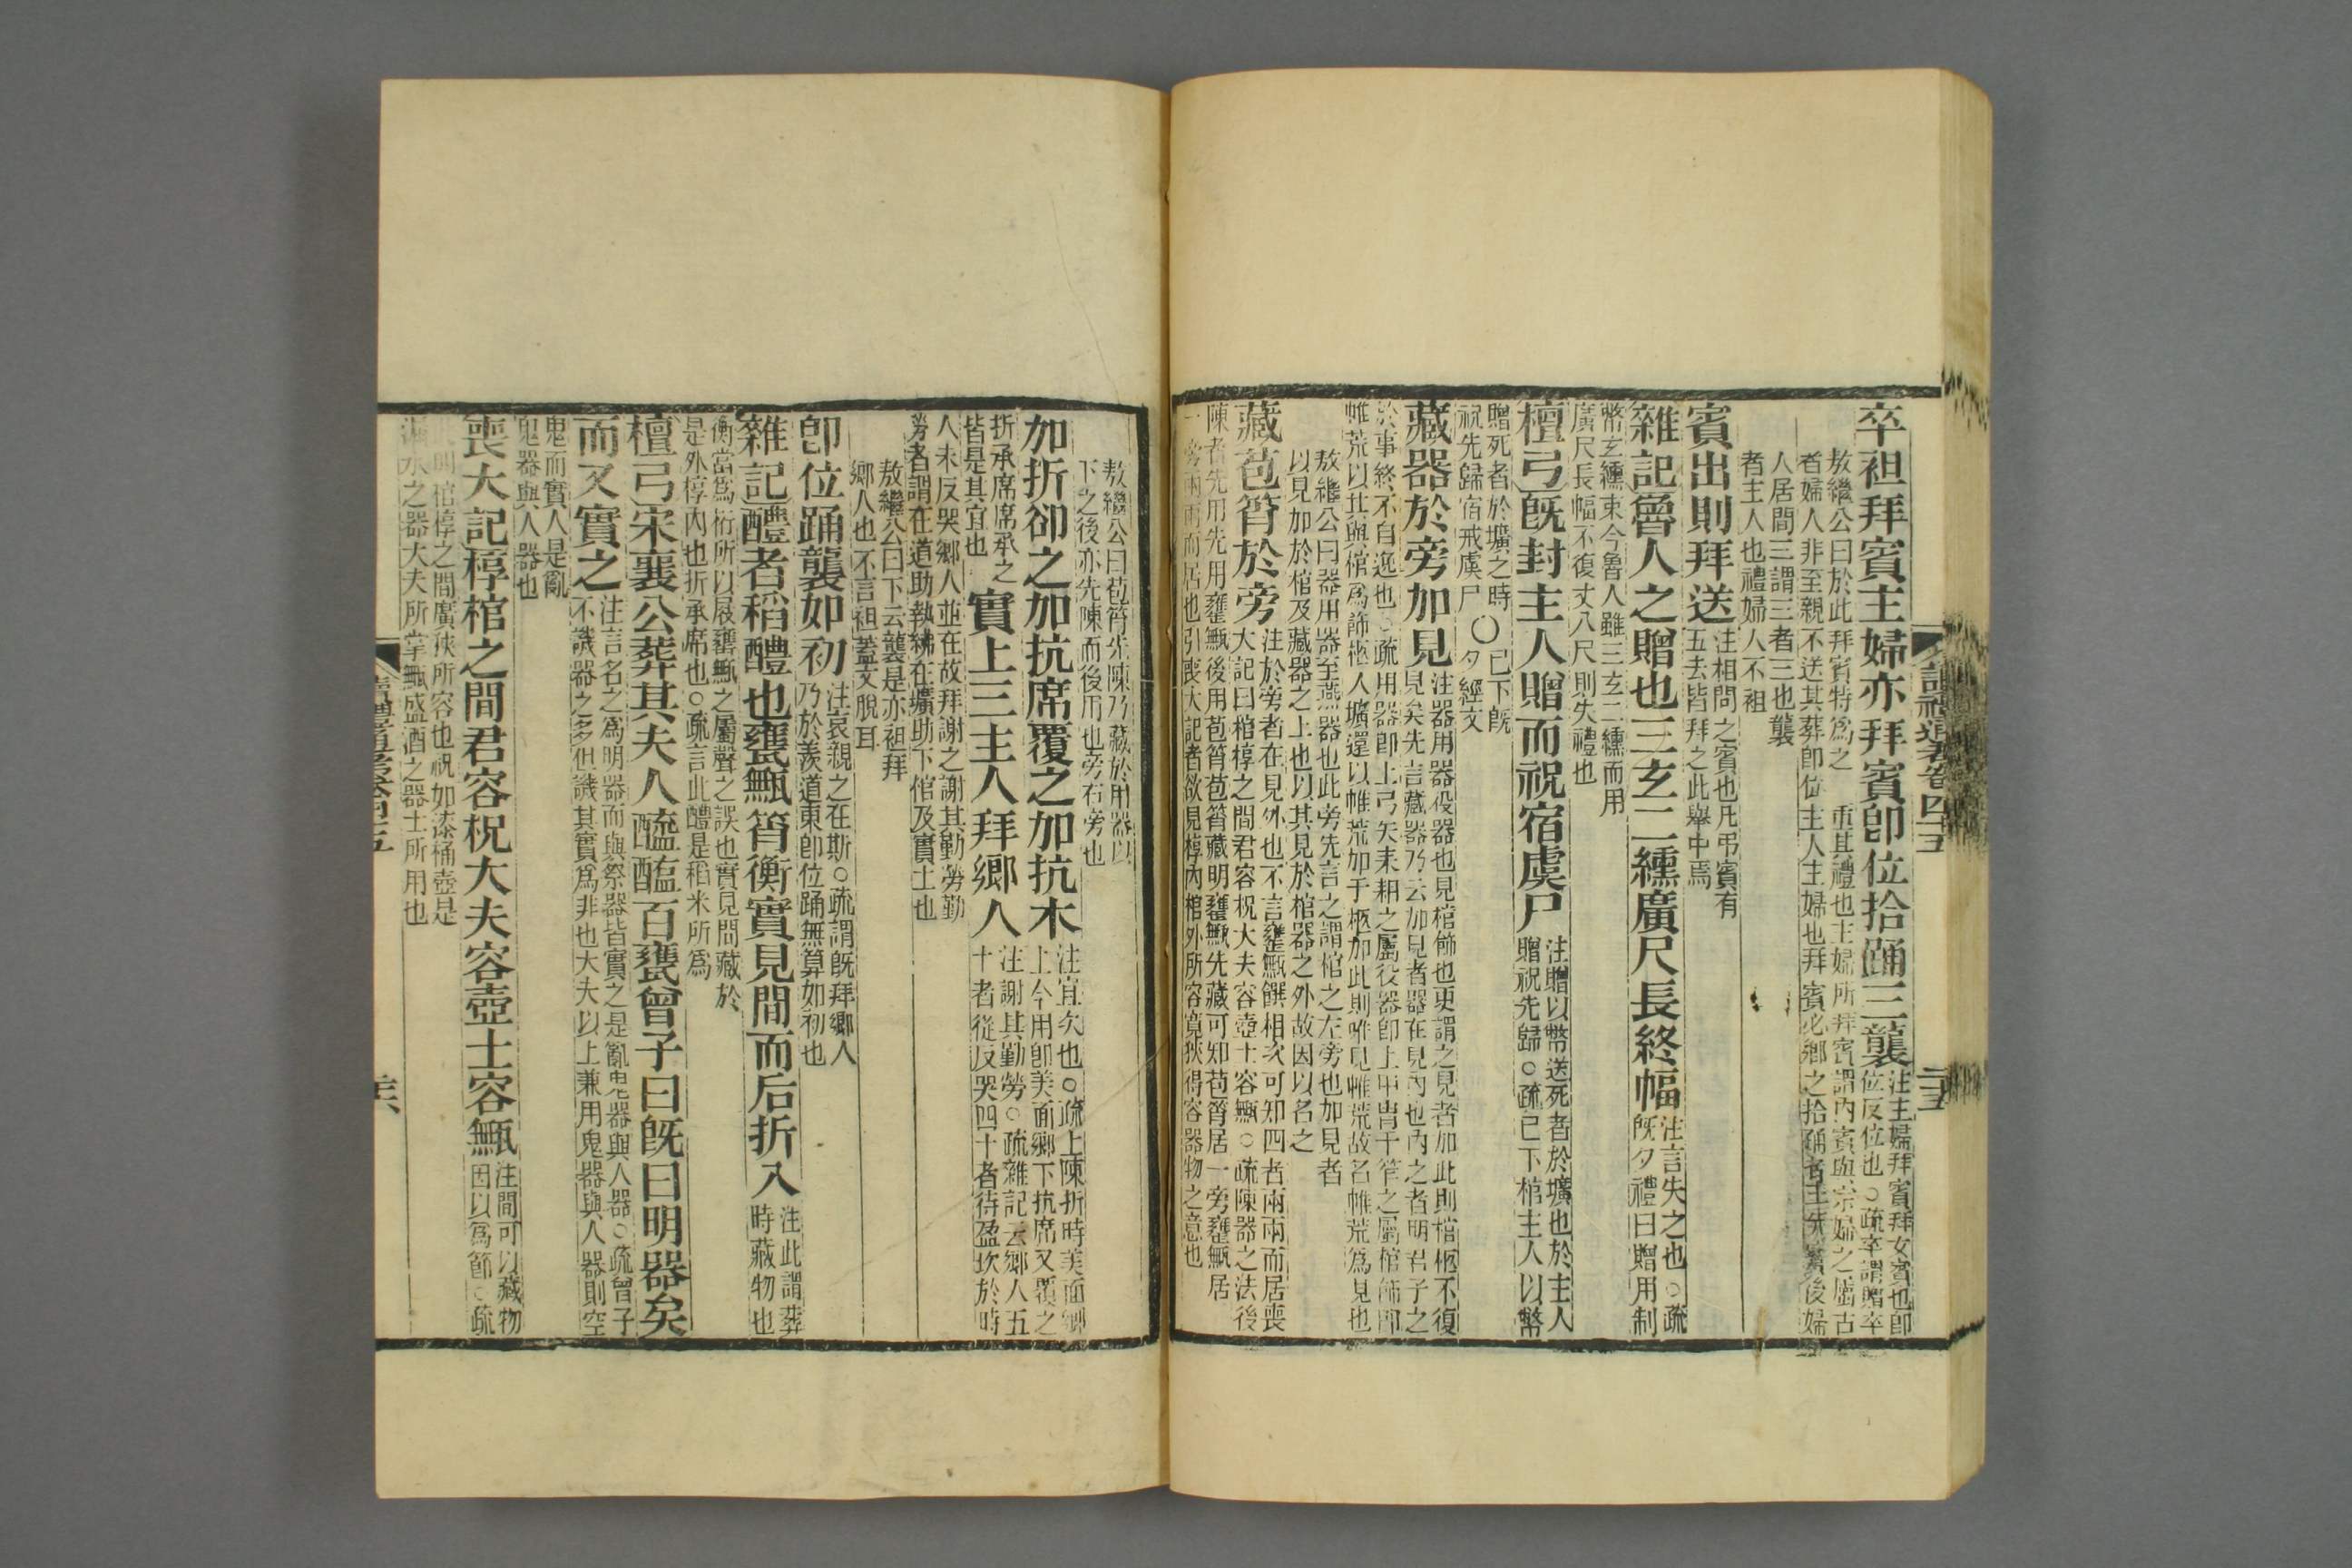 卒袒拜賓主婦亦拜賓即位拾踊三襲注主婦拜賓拜女賓也即
位反位也○疏卒謂贈卒
敖繼公曰於此拜賓特爲之 重其禮也主婦所拜賓謂内賓與宗婦之屬古
者婦人非至親不送其葬即位 主人主婦也拜賓必鄉之拾踊者主先賓後婦
人居間三謂三者三也襲
者主人也禮婦人不袒
賓出則拜送注相問之賓也凡弔賓有
五去皆拜之此舉中焉
雜記魯人之贈也三玄二纁廣尺長終幅注言失之也○疏
既夕禮曰贈用制
幣玄纁束今魯人雖三玄二纁而用
廣尺長幅不復丈八尺則失禮也
檀弓既封主人贈而祝宿虞尸注贈以幣送死者於壙也於主人
贈祝先歸○疏已下棺主人以幣
贈死者於壙之時
祝先歸宿戒虞尸 〇已下既
夕經文
藏器於旁加見注器用器役器也見棺飾也更謂之見者加此則棺柩不復
見矣先言藏器乃云加見者器在見內也內之者明君子之
於事終不自逸也○疏用器即上弓矢耒耜之屬役器即上甲冑干笮之屬棺飾即
帷荒以其與棺爲飾柩入壙還以帷荒加于柩加此則唯見帷荒故名帷荒爲見也
敖繼公曰器用器至燕器也此旁先言之謂棺之左旁也加見者
以見加於棺及藏器之上也以其見於棺器之外故因以名之
藏苞筲於旁注於旁者在見外也不言甕甒饌相次可知四者兩兩而居喪
大記曰棺椁之間君容柷大夫容壺士容甒○疏陳器之法後
陳者先用先用甕甒後用苞筲苞筲藏明甕甒先藏可知苞筲居一旁甕甒居
一旁兩兩而居也引喪大記者欲見椁內棺外所容寬狹得容器物之意也
敖繼公曰苞筲先陳乃藏於用器以
下之後亦先陳而後用也旁右旁也
加折卻之加抗席覆之加抗木注宜次也○疏上陳折時美面鄉
上今用即美面鄉下抗席又覆之
折承席席承之
皆是其宜也
實土三主人拜鄉人注謝其勤勞○疏雜記云鄉人五
十者從反哭四十者待盈坎於時
人未反哭鄉人並在故拜謝之謝其勤勞勤
勞者謂在道助執紼在壙助下棺及實土也
敖繼公曰下云襲是亦袒拜
鄉人也不言袒蓋文脫耳
即位踊襲如初注哀親之在斯○疏謂既拜鄉人
乃於羨道東即位踊無算如初也
雜記醴者稻醴也甕甒筲衡實見間而后折入注此謂葬
時藏物也
衡當爲桁所以庪甕甒之屬聲之誤也實見間藏於
是外椁內也折承席也○疏言此醴是稻米所爲
檀弓宋襄公葬其夫人醯醢百甕曾子曰既曰明器矣
而又實之注言名之爲明器而與祭器皆實之是亂鬼器與人器○疏曾子
不譏器之多但譏其實爲非也大夫以上兼用鬼器與人器則空
鬼而實人是亂
鬼器與人器也
喪大記椁棺之間君容柷大夫容壺士容甒注間可以藏物
因以爲節○疏
棺椁之間廣狹所容也柷如漆桶壺是
漏水之器大夫所掌甒盛酒之器士所用也